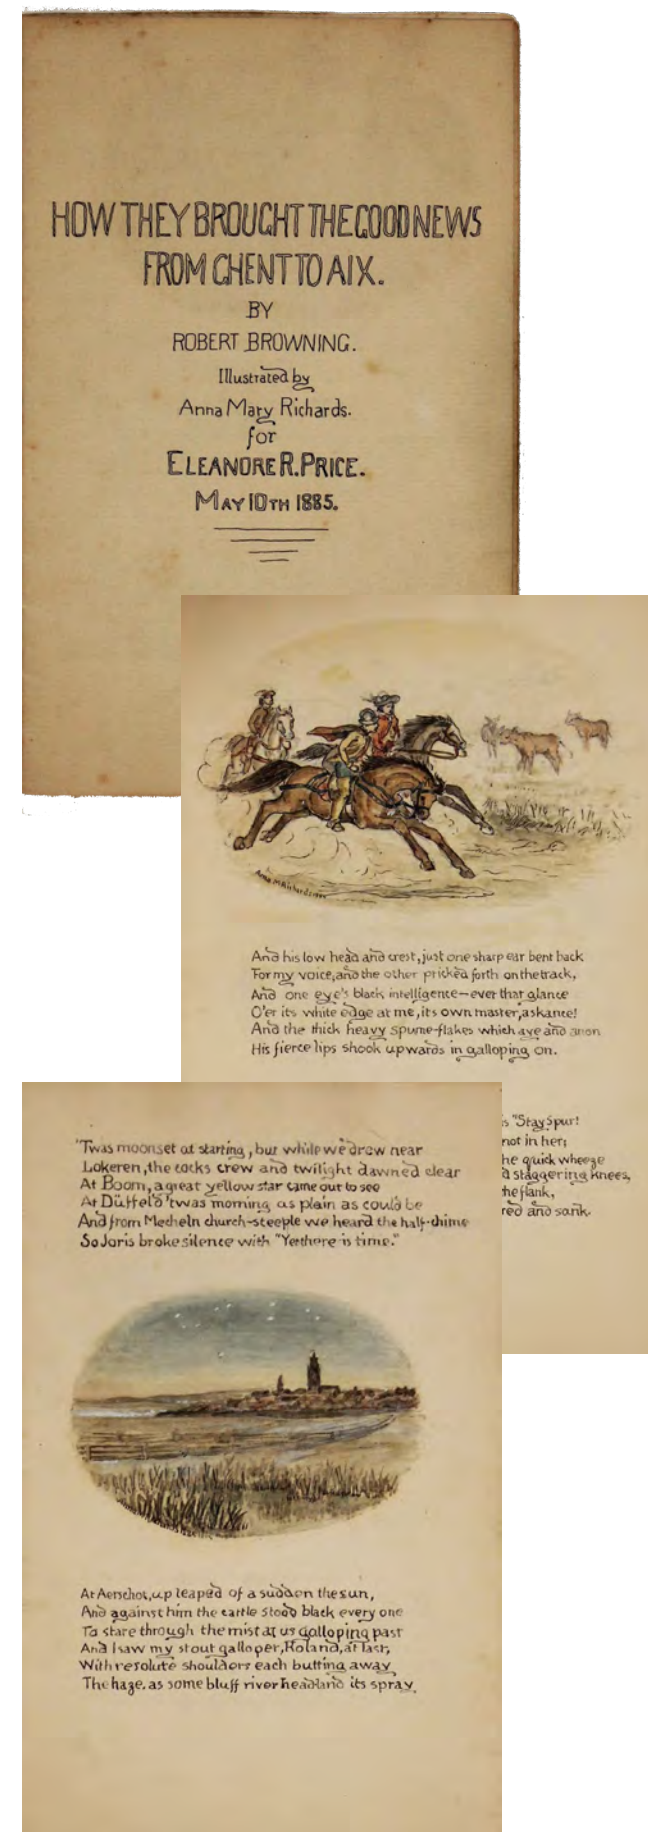 HOW THEY BROUGHT THE GOOD NEWS
FROM GHENT TO AIX.
BY
ROBERT BROWNING.
Illustrated by
Anna Mary Richards.
for
ELEANORE R. PRICE.
MAY 10TH 1885.
And his low head and crest, just one sharp ear bent back
For my voice, and the other pricked forth on the track,
And one eye's black intelligence—ever that glance
O'er its white edge at me, its own master, askance!
And the thick heavy spume-flakes which aye and anon
His fierce lips shook upwards in galloping on.
"Stay Spur!
not in her;
he quick wheeze
staggering knees,
the flank,
and sank.
'Twas moonset at starting, but while we drew near
Lokeren, the cocks crew and twilight dawned clear
At Boom, a great yellow star came out to see
At Düffeld 'twas morning as plain as could be
And from Mecheln church-steeple we heard the half-chime
So Joris broke silence with "Yet there is time."
At Aerschot, up leaped of a sudden the sun,
And against him the cattle stood black every one
To stare through the mist at us galloping past
And I saw my stout galloper, Roland, at last,
With resolute shoulders each butting away
The haze, as some bluff river headland its spray